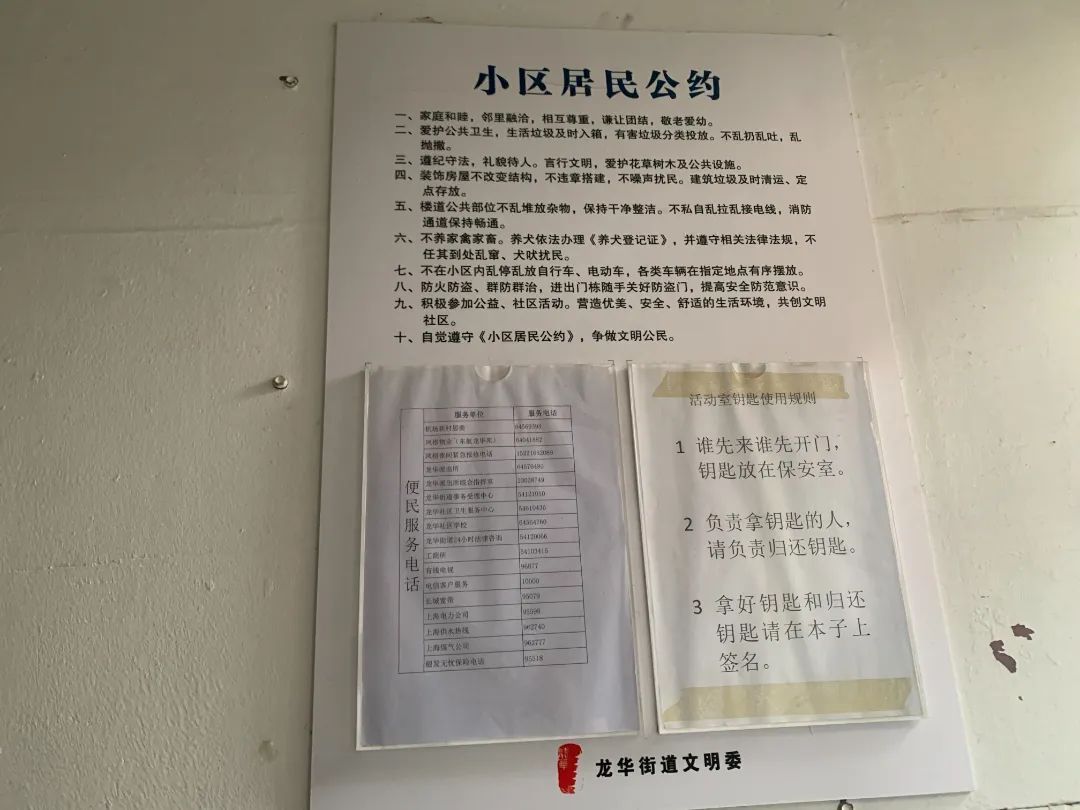 小区居民公约
一、家庭和睦，邻里融洽，相互尊重，谦让团结，敬老爱幼。
二、爱护公共卫生，生活垃圾及时入箱，有害垃圾分类投放。不乱扔乱吐，乱
抛撒。
三、遵纪守法，礼貌待人。言行文明，爱护花草树木及公共设施。
四、装饰房屋不改变结构，不违章搭建，不噪声扰民。建筑垃圾及时清运、定
点存放。
五、楼道公共部位不乱堆放杂物，保持干净整洁。不私自乱拉乱接电线，消防
通道保持畅通。
六、不养家禽家畜。养犬依法办理《养犬登记证》，并遵守相关法律法规，不
任其到处乱窜、犬吠扰民。
七、不在小区内乱停乱放自行车、电动车，各类车辆在指定地点有序摆放。
八、防火防盗、群防群治，进出门栋随手关好防盗门，提高安全防范意识。
九、积极参加公益、社区活动。营造优美、安全、舒适的生活环境，共创文明
社区。
十、自觉遵守《小区居民公约》，争做文明公民。
便民服务电话
服务单位 服务电话
机场新村居委
龙华派出所
龙华街道事务受理中心
龙华社区卫生服务中心
龙华社区学校
龙华街道24小时法律咨询
有线电视
电信客户服务 10000
长城宽带 95079
上海电力公司 95598
上海供水热线 962740
上海煤气公司 962777
95518
活动室钥匙使用规则
1 谁先来谁先开门，
钥匙放在保安室。
2 负责拿钥匙的人，
请负责归还钥匙。
3 拿好钥匙和归还
钥匙请在本子上
签名。
龙华街道文明委